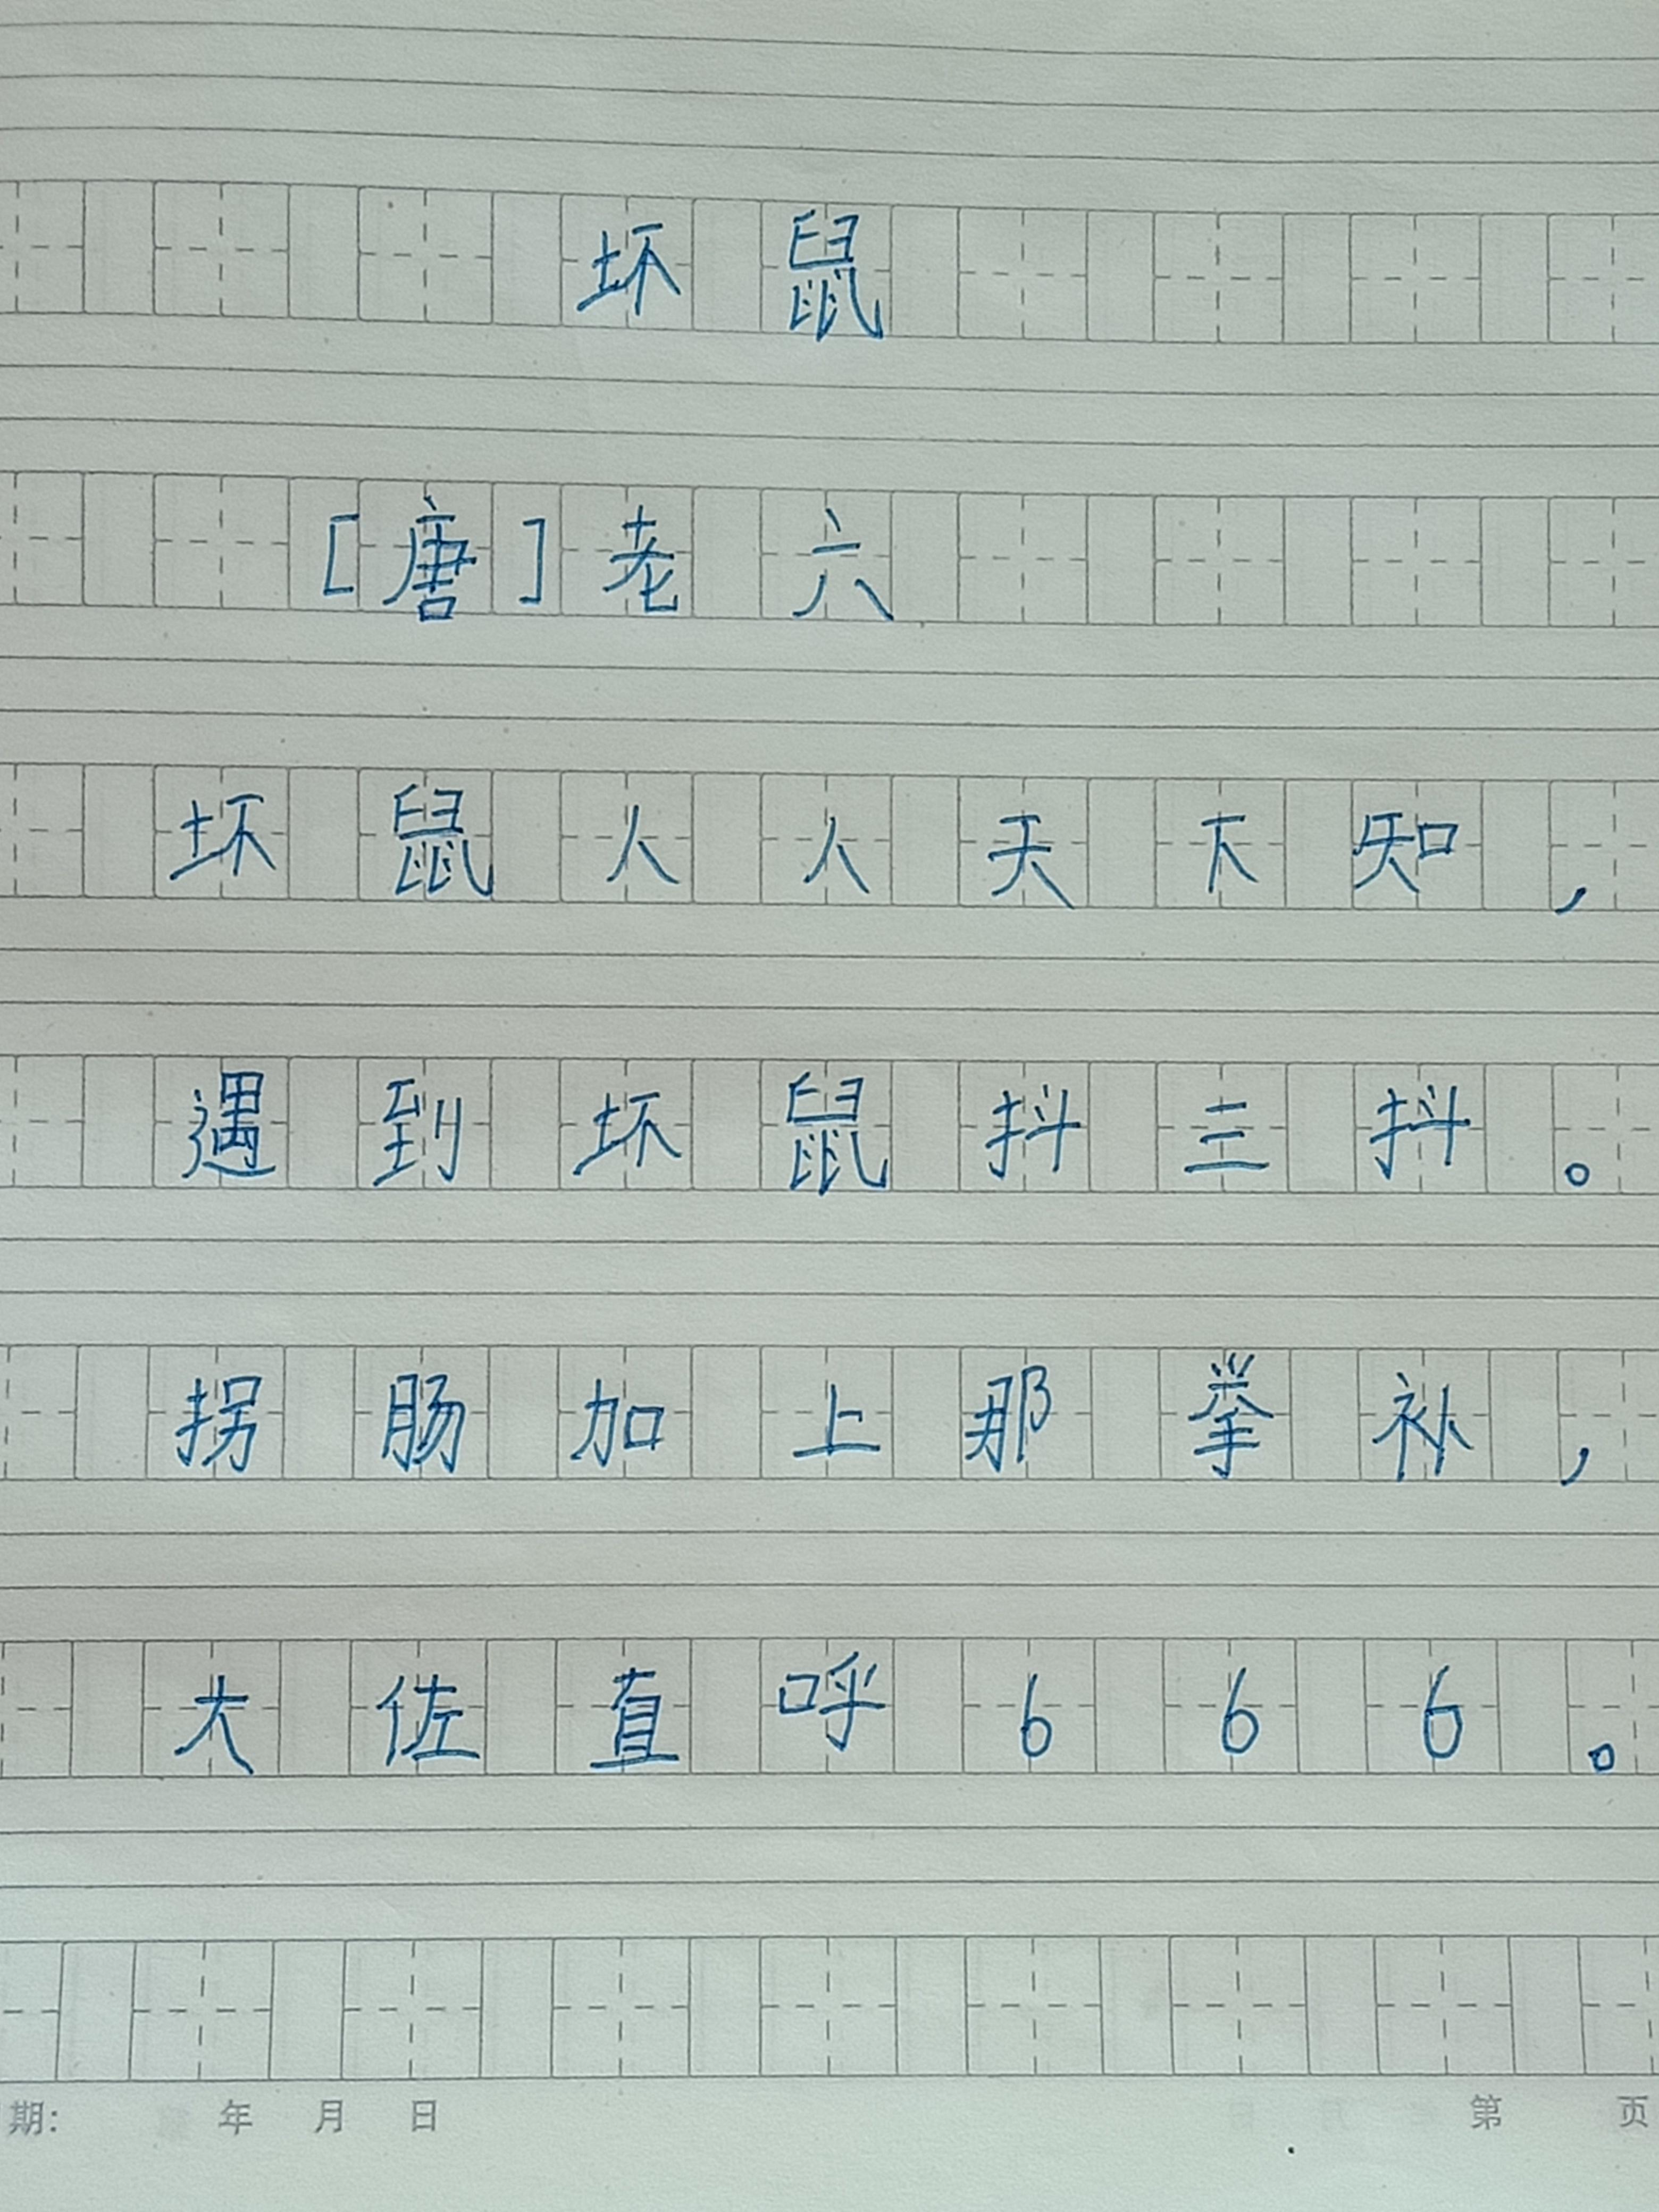 坏鼠
[唐]老六
坏鼠人人天下知，
遇到坏鼠抖三抖。
拐肠加上那拳补，
大佐直呼666。
期： 年 月 日 第 页